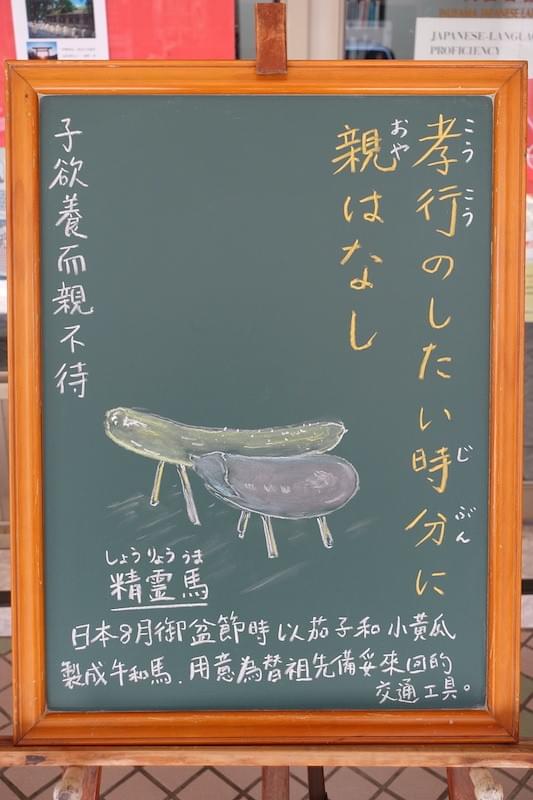 JAPANESE-LANGUAG
PROFICIENCY
孝行のしたい時分に
こうこう
じぶん
親はなし
おや
子欲養而親不待
しょうりょううま
精霊馬
日本8月御盆節時以茄子和小黃瓜
製成牛和馬.用意為替祖先備妥來回的
交通工具。